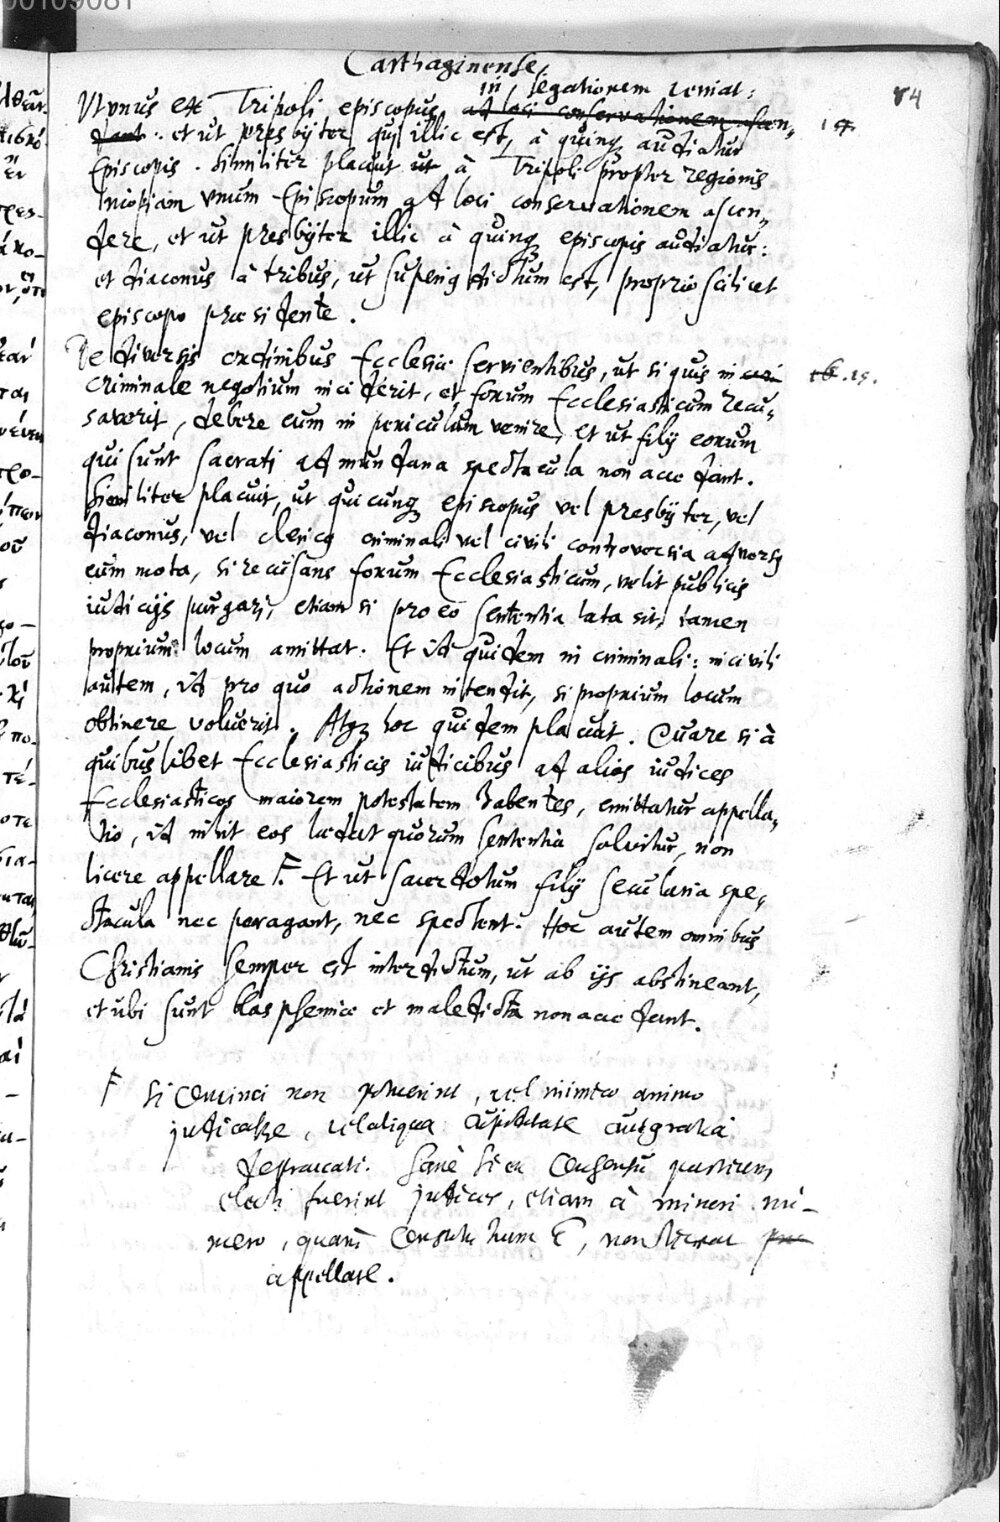 00109081
Carthaginense.
84
in legationem veniat:
Ut unus ex Tripoli episcopus ad loci conservationem ascen„
dant. et ut presbyter qui illic est, à quinq₃ audiatur
14
Episcopis. Similiter placuit ut à Tripoli propter regionis
inopiam unum Episcopum ad loci conservationem ascen„
dere, et ut presbyter illic à quinq₃ episcopis audiatur:
et diaconus à tribus, ut superius dictum est, proprio scilicet
episcopo præsidente.
De diversis ordinibus Ecclesiæ servientibus, ut si quis in
15.
criminale negotium inciderit, et forum Ecclesiasticum recu„
saverit, debere eum in periculum venire, et ut filij eorum
qui sunt sacrati ad mundana spectacula non accedant.
Similiter placuit, ut quicunq₃ episcopus vel presbyter, vel
diaconus, vel clericus criminali vel civili controversia adversus
eum mota, si recusans forum Ecclesiasticum, velit publicis
iudicijs purgari, etiam si pro eo sententia lata sit, tamen
proprium locum amittat. Et id quidem in criminali: in civili
autem, id pro quo actionem intendit, si proprium locum
obtinere voluerit. Atq₃ hoc quidem placuit. Quare si à
quibuslibet Ecclesiasticis iudicibus ad alios iudices
Ecclesiasticos maiorem potestatem habentes, emittatur appella„
tio, id nihil eos lædat quorum sententia solvitur, non
licere appellare F. Et ut sacerdotum filij secularia spe„
ctacula nec peragant, nec spectent. Hoc autem omnibus
Christianis semper est interdictum, ut ab ijs abstineant,
et ubi sunt blasphemiæ et maledicta non accedant.
F si convinci non potuerint, vel inimico animo
judicasse, vel aliqua cupiditate aut gratia
depravati. Sanè si ex consensu partium
electi fuerint judices, etiam à minori nu-
mero, quam constitutum ē, non liceat
appellare.